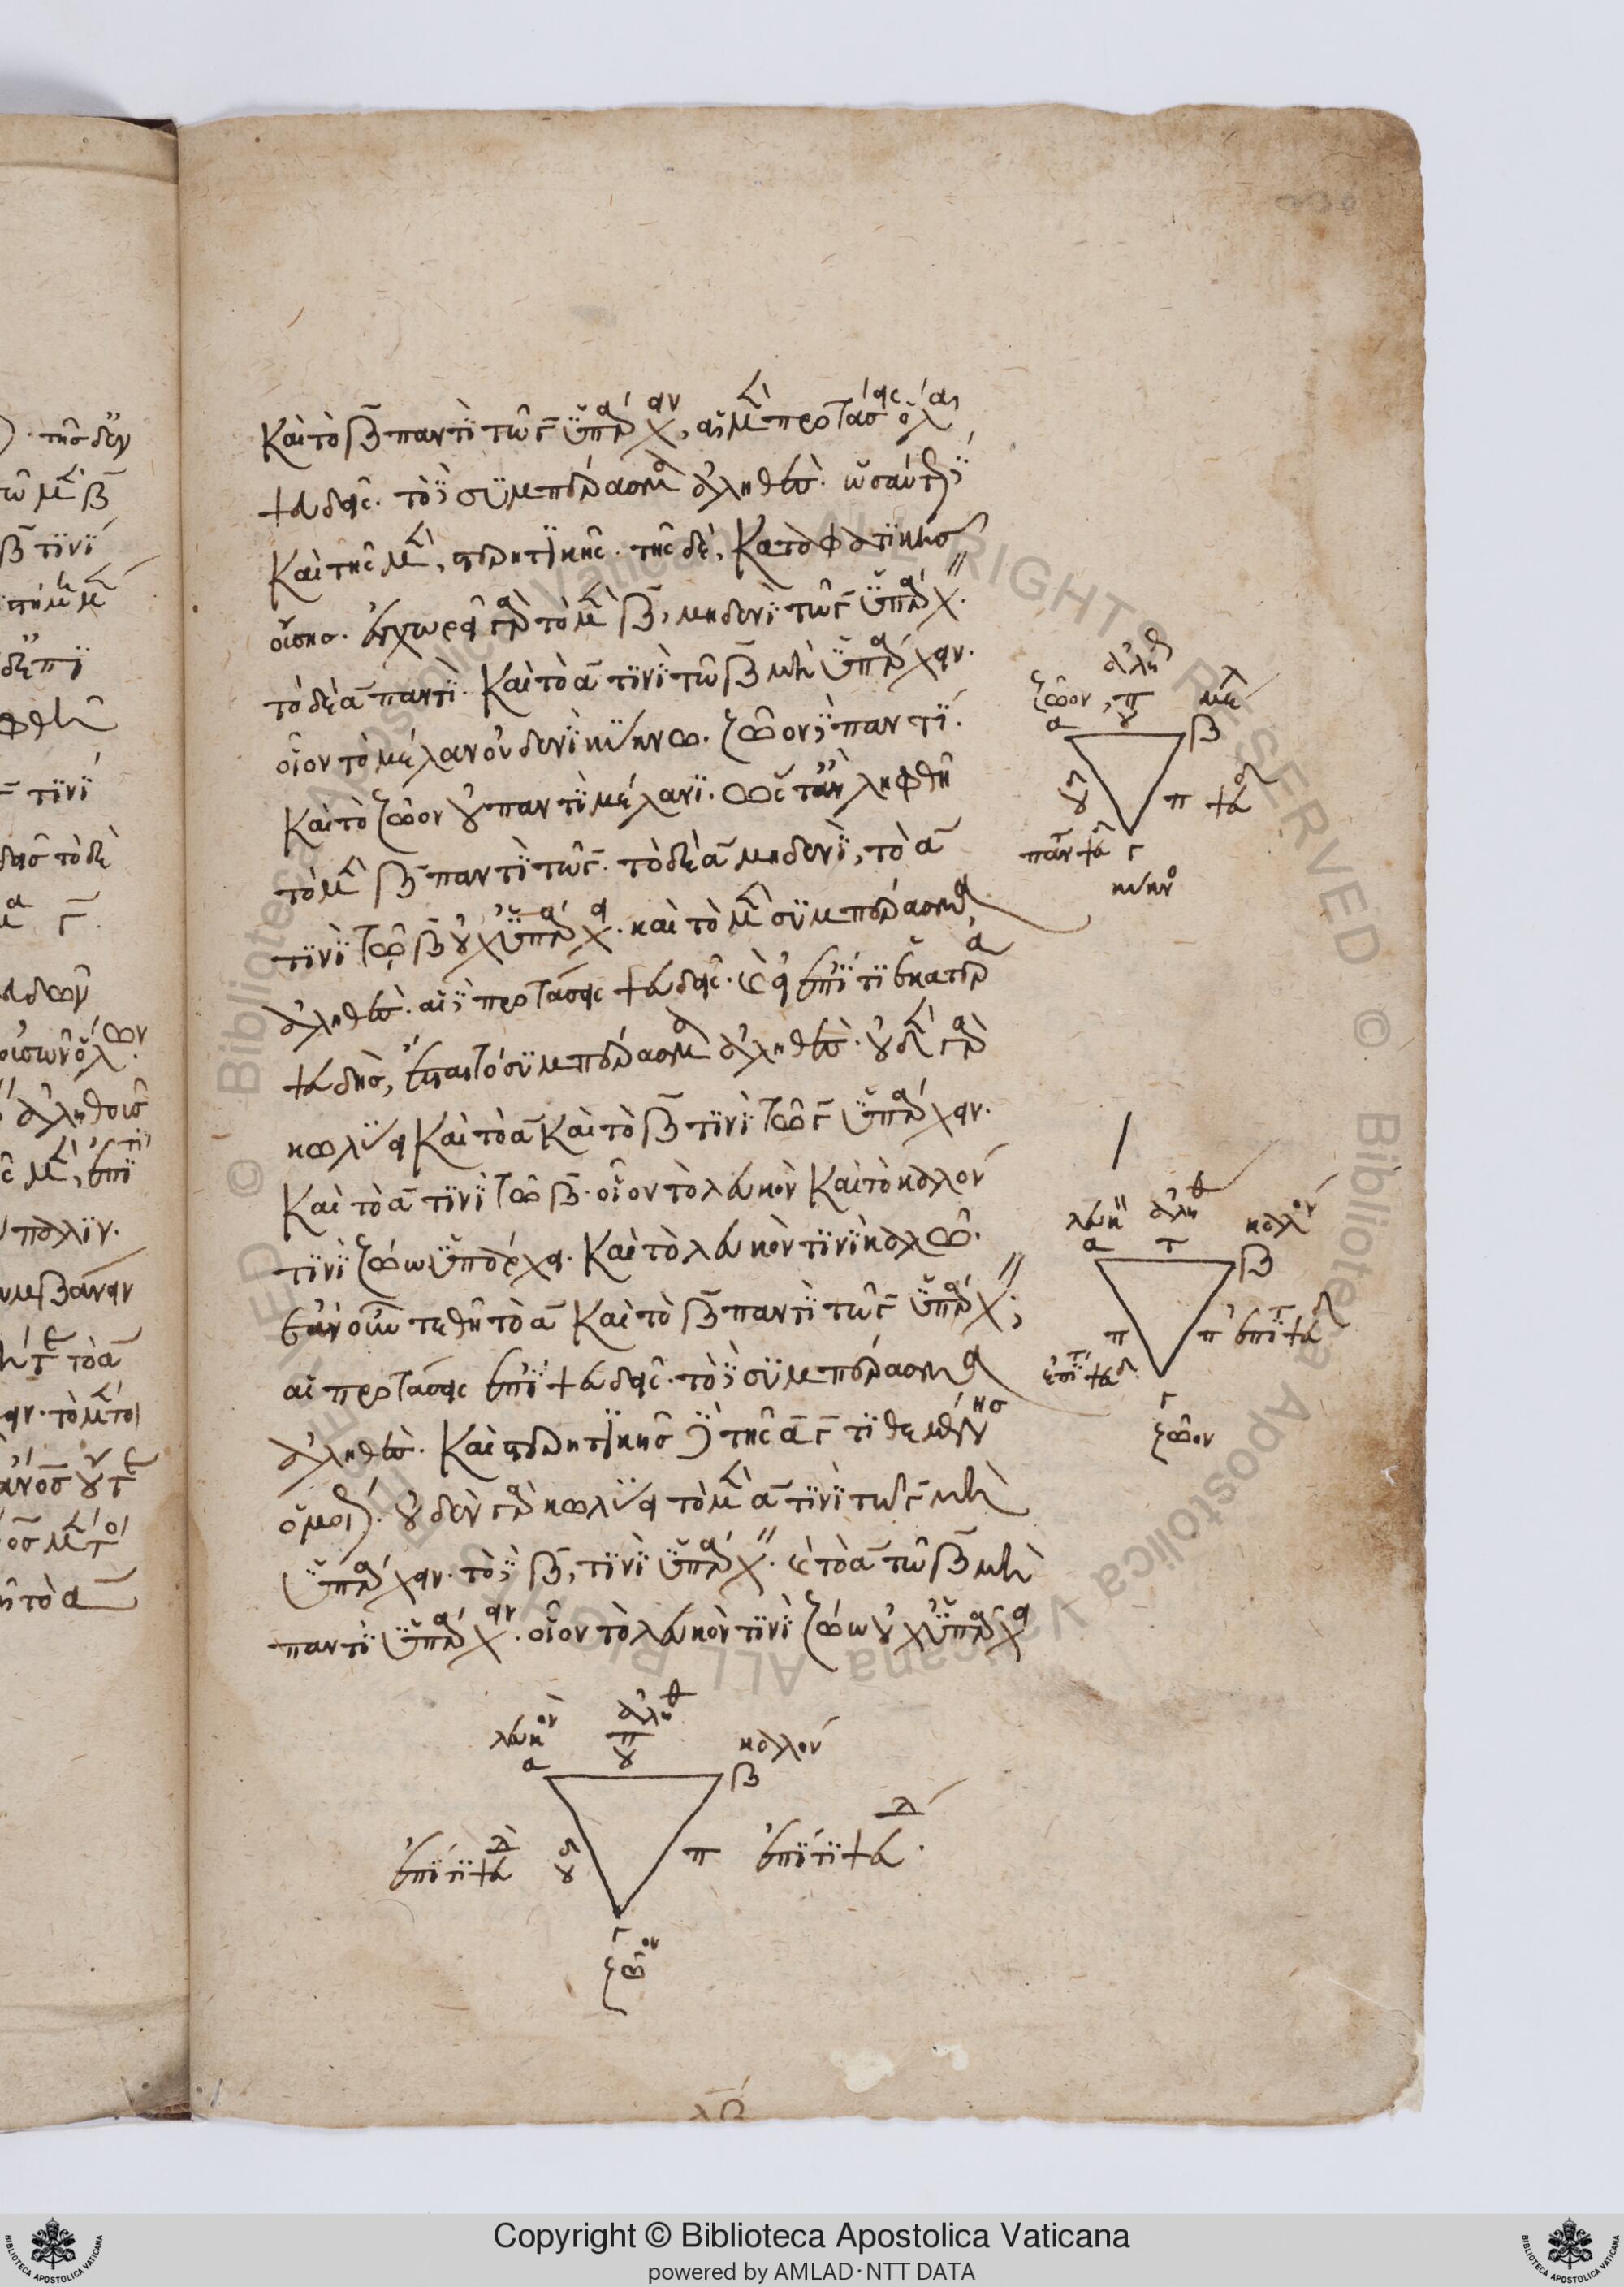 καὶ τὸ β παντὶ τῷ γ ὑπάρχειν, αἱ μὲν προτάσεις ὅλαι
ψευδεῖς. τὸ δὲ συμπέρασμα ἀληθές. ὡσαύτως δὲ
καὶ τῆς μὲν, στερητικῆς. τῆς δὲ, καταφατικῆς
οὔσης. ἐγχωρεῖ γὰρ τὸ μὲν β, μηδενὶ τῷ γ ὑπάρχειν.
τὸ δὲ α παντὶ. καὶ τὸ α τινὶ τῷ β μὴ ὑπάρχειν.
οἷον τὸ μέλαν οὐδενὶ κύκνω. ζῶον δὲ παντί.
καὶ τὸ ζῶον οὐ παντὶ μέλανι. ὡς τ' ἂν ληφθῆ
τὸ μὲν β παντὶ τῷ γ. τὸ δὲ α μηδενὶ, τὸ α
τινὶ τῷ β οὐχ ὑπάρχει. καὶ τὸ μὲν συμπέρασμα
ἀληθές. αἱ δὲ προτάσεις ψευδεῖς. καὶ εἰ ἐπί τι ἑκατέρα
ψευδὴς, ἔσται τὸ συμπέρασμα ἀληθές. οὐδὲν γὰρ
κωλύει καὶ τὸ α καὶ τὸ β τινὶ τῷ γ ὑπάρχειν.
καὶ τὸ α τινὶ τῷ β. οἷον τὸ λευκὸν καὶ τὸ καλὸν
τινὶ ζώω ὑπάρχει. καὶ τὸ λευκὸν τινὶ καλῷ.
ἐὰν οὖν τεθῆ τὸ α καὶ τὸ β παντὶ τῷ γ ὑπάρχειν,
αἱ προτάσεις ἐπί τι ψευδεῖς. τὸ δὲ συμπέρασμα
ἀληθές. καὶ στερητικῆς δὲ τῆς α γ τιθεμένης
ὁμοίως. οὐδὲν γὰρ κωλύει τὸ μὲν α τινὶ τῷ γ μὴ
ὑπάρχειν. τὸ δὲ β, τινὶ ὑπάρχειν. καὶ τὸ α τῷ β μὴ
παντὶ ὑπάρχειν. οἷον τὸ λευκὸν τινὶ ζώω οὐχ ὑπάρχει
ἀληθ
ζῶον π οὐ μέλ
α β
οὐδ π ψευδ
παντ ψευδ γ
κύκνο
λευκ ἀληθ καλόν
α τ β
π π ἐπί τι ψευδ
ἐπί τι ψευδ γ
ζῶον
λευκὸν ἀληθ καλόν
α π οὐ β
ἐπί τι ψευδ οὐδ π ἐπί τι ψευδ
γ
ζῶον
© Biblioteca Apostolica Vaticana ALL RIGHTS RESERVED
Copyright © Biblioteca Apostolica Vaticana
powered by AMLAD·NTT DATA